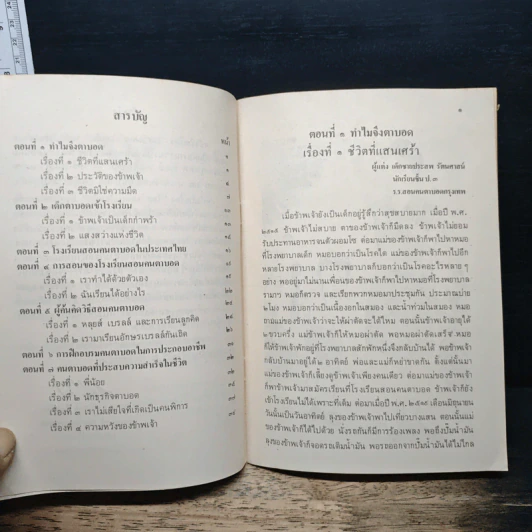 สารบัญ
หน้า
ตอนที่ ๑ ทำไมจึงตาบอด
เรื่องที่ ๑ ชีวิตที่แสนเศร้า
เรื่องที่ ๒ ประวัติของข้าพเจ้า
เรื่องที่ ๓ ชีวิตมิใช่ความมืด
ตอนที่ ๒ เด็กตาบอดเข้าโรงเรียน
เรื่องที่ ๑ ข้าพเจ้าเป็นเด็กกำพร้า
เรื่องที่ ๒ แสงสว่างแห่งชีวิต
ตอนที่ ๓ โรงเรียนสอนคนตาบอดในประเทศไทย
ตอนที่ ๔ การสอนของโรงเรียนสอนคนตาบอด
เรื่องที่ ๑ เราทำได้ด้วยตัวเอง
เรื่องที่ ๒ ฉันเรียนได้อย่างไร
ตอนที่ ๕ ผู้คิดค้นวิธีสอนคนตาบอด
เรื่องที่ ๑ หลุยส์ เบรลล์ และการเรียนลูกคิด
เรื่องที่ ๒ เรามาเรียนอักษรเบรลล์กันเถิด
ตอนที่ ๖ การฝึกอบรมคนตาบอดในการประกอบอาชีพ
ตอนที่ ๗ คนตาบอดที่ประสบความสำเร็จในชีวิต
เรื่องที่ ๑ พี่น้อย
เรื่องที่ ๒ นักธุรกิจตาบอด
เรื่องที่ ๓ เราไม่เสียใจที่เกิดเป็นคนพิการ
เรื่องที่ ๔ ความหวังของข้าพเจ้า
๑
ตอนที่ ๑ ทำไมจึงตาบอด
เรื่องที่ ๑ ชีวิตที่แสนเศร้า
ผู้แต่ง เด็กชายประลอง
นักเรียนชั้น ป.๓
ร.ร.สอนคนตาบอดกรุงเทพ
เมื่อข้าพเจ้ายังเป็นเด็กอยู่รู้สึกว่าสุขสบายมาก เมื่อปี พ.ศ.
ข้าพเจ้าไม่สบาย ตาของข้าพเจ้าก็มืดลง ข้าพเจ้าไม่ยอม
รับประทานอาหารจนตัวผอมโซ ต่อมาแม่ของข้าพเจ้าก็พาไปหาหมอ
ที่โรงพยาบาลเด็ก หมอบอกว่าเป็นโรคไต แม่ของข้าพเจ้าก็พาไปอีก
หลายโรงพยาบาล บางโรงพยาบาลก็บอกว่าเป็นโรคอะไรหลาย ๆ
อย่าง พออยู่มาไม่นานเพื่อนของข้าพเจ้าก็พาไปหาหมอที่โรงพยาบาล
รามาฯ หมอก็ตรวจ และเรียกพวกหมอมาประชุมกัน ประมาณบ่าย
๒ โมง หมอบอกว่าเป็นเนื้องอกในสมอง และน้ำท่วมในสมอง หมอ
ถามแม่ของข้าพเจ้าว่าจะให้ผ่าตัดจะได้ไหม ตอนนั้นข้าพเจ้าอายุได้
๒ ขวบครึ่ง แม่ข้าพเจ้าก็ให้หมอผ่าตัด พอหมอผ่าตัดเสร็จ หมอ
ก็ให้ข้าพเจ้าพักอยู่ที่โรงพยาบาลสักพักหนึ่งจึงกลับบ้านได้ พอข้าพเจ้า
กลับบ้านมาอยู่ได้ ๒ อาทิตย์ พ่อและแม่ก็หย่าขาดกัน ตั้งแต่นั้นมา
แม่ของข้าพเจ้าก็เลี้ยงดูข้าพเจ้าเพียงคนเดียว ต่อมาแม่ของข้าพเจ้า
ก็พาข้าพเจ้ามาสมัครเรียนที่โรงเรียนสอนคนตาบอด ข้าพเจ้าก็ยัง
เข้าโรงเรียนไม่ได้เพราะที่เต็ม ต่อมาเมื่อปี พ.ศ. เดือนมิถุนายน
วันนั้นเป็นวันอาทิตย์ ลุงของข้าพเจ้าพาไปเที่ยวบางแสน ตอนนั้นแม่
ของข้าพเจ้าก็ได้ไปด้วย นั่งรถกันก็มีการร้องเพลง พอถึงปั๊มน้ำมัน
ลุงของข้าพเจ้าก็จอดรถเติมน้ำมัน พอรถออกจากปั๊มน้ำมันได้ไม่ไกล